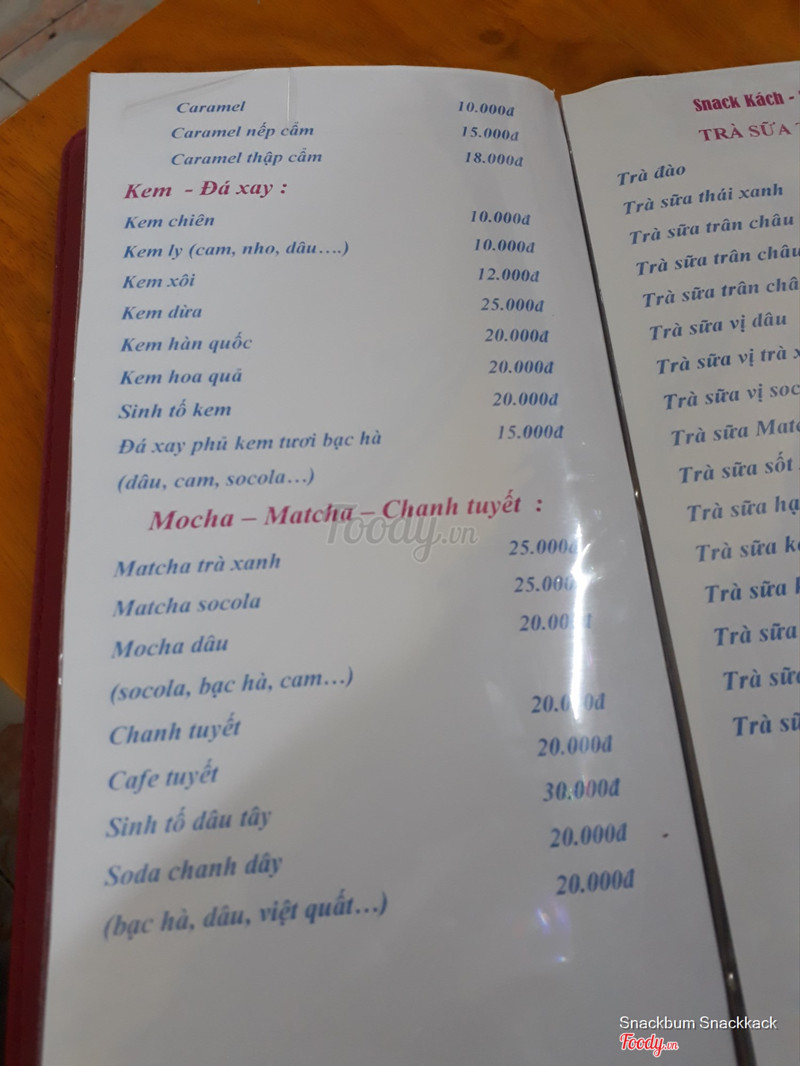 Caramel 10.000đ
Caramel nếp cẩm 15.000đ
Caramel thập cẩm 18.000đ
Kem - Đá xay :
Kem chiên 10.000đ
Kem ly (cam, nho, dâu….) 10.000đ
Kem xôi 12.000đ
Kem dừa 25.000đ
Kem hàn quốc 20.000đ
Kem hoa quả 20.000đ
Sinh tố kem 20.000đ
Đá xay phủ kem tươi bạc hà 15.000đ
(dâu, cam, socola…)
Mocha – Matcha – Chanh tuyết :
Matcha trà xanh 25.000đ
Matcha socola 25.000đ
Mocha dâu 20.000đ
(socola, bạc hà, cam…)
Chanh tuyết 20.000đ
Cafe tuyết 20.000đ
Sinh tố dâu tây 30.000đ
Soda chanh dây 20.000đ
(bạc hà, dâu, việt quất…) 20.000đ
Snack Kách -
TRÀ SỮA
Trà đào
Trà sữa thái xanh
Trà sữa trân châu
Trà sữa trân châu
Trà sữa trân
Trà sữa vị dâu
Trà sữa vị trà
Trà sữa vị
Trà sữa
Trà sữa sốt
Trà sữa
Trà sữa
Trà sữa
Trà sữa
Trà sữa
Trà
Foody.vn
Snackbum Snackkack
Foody.vn